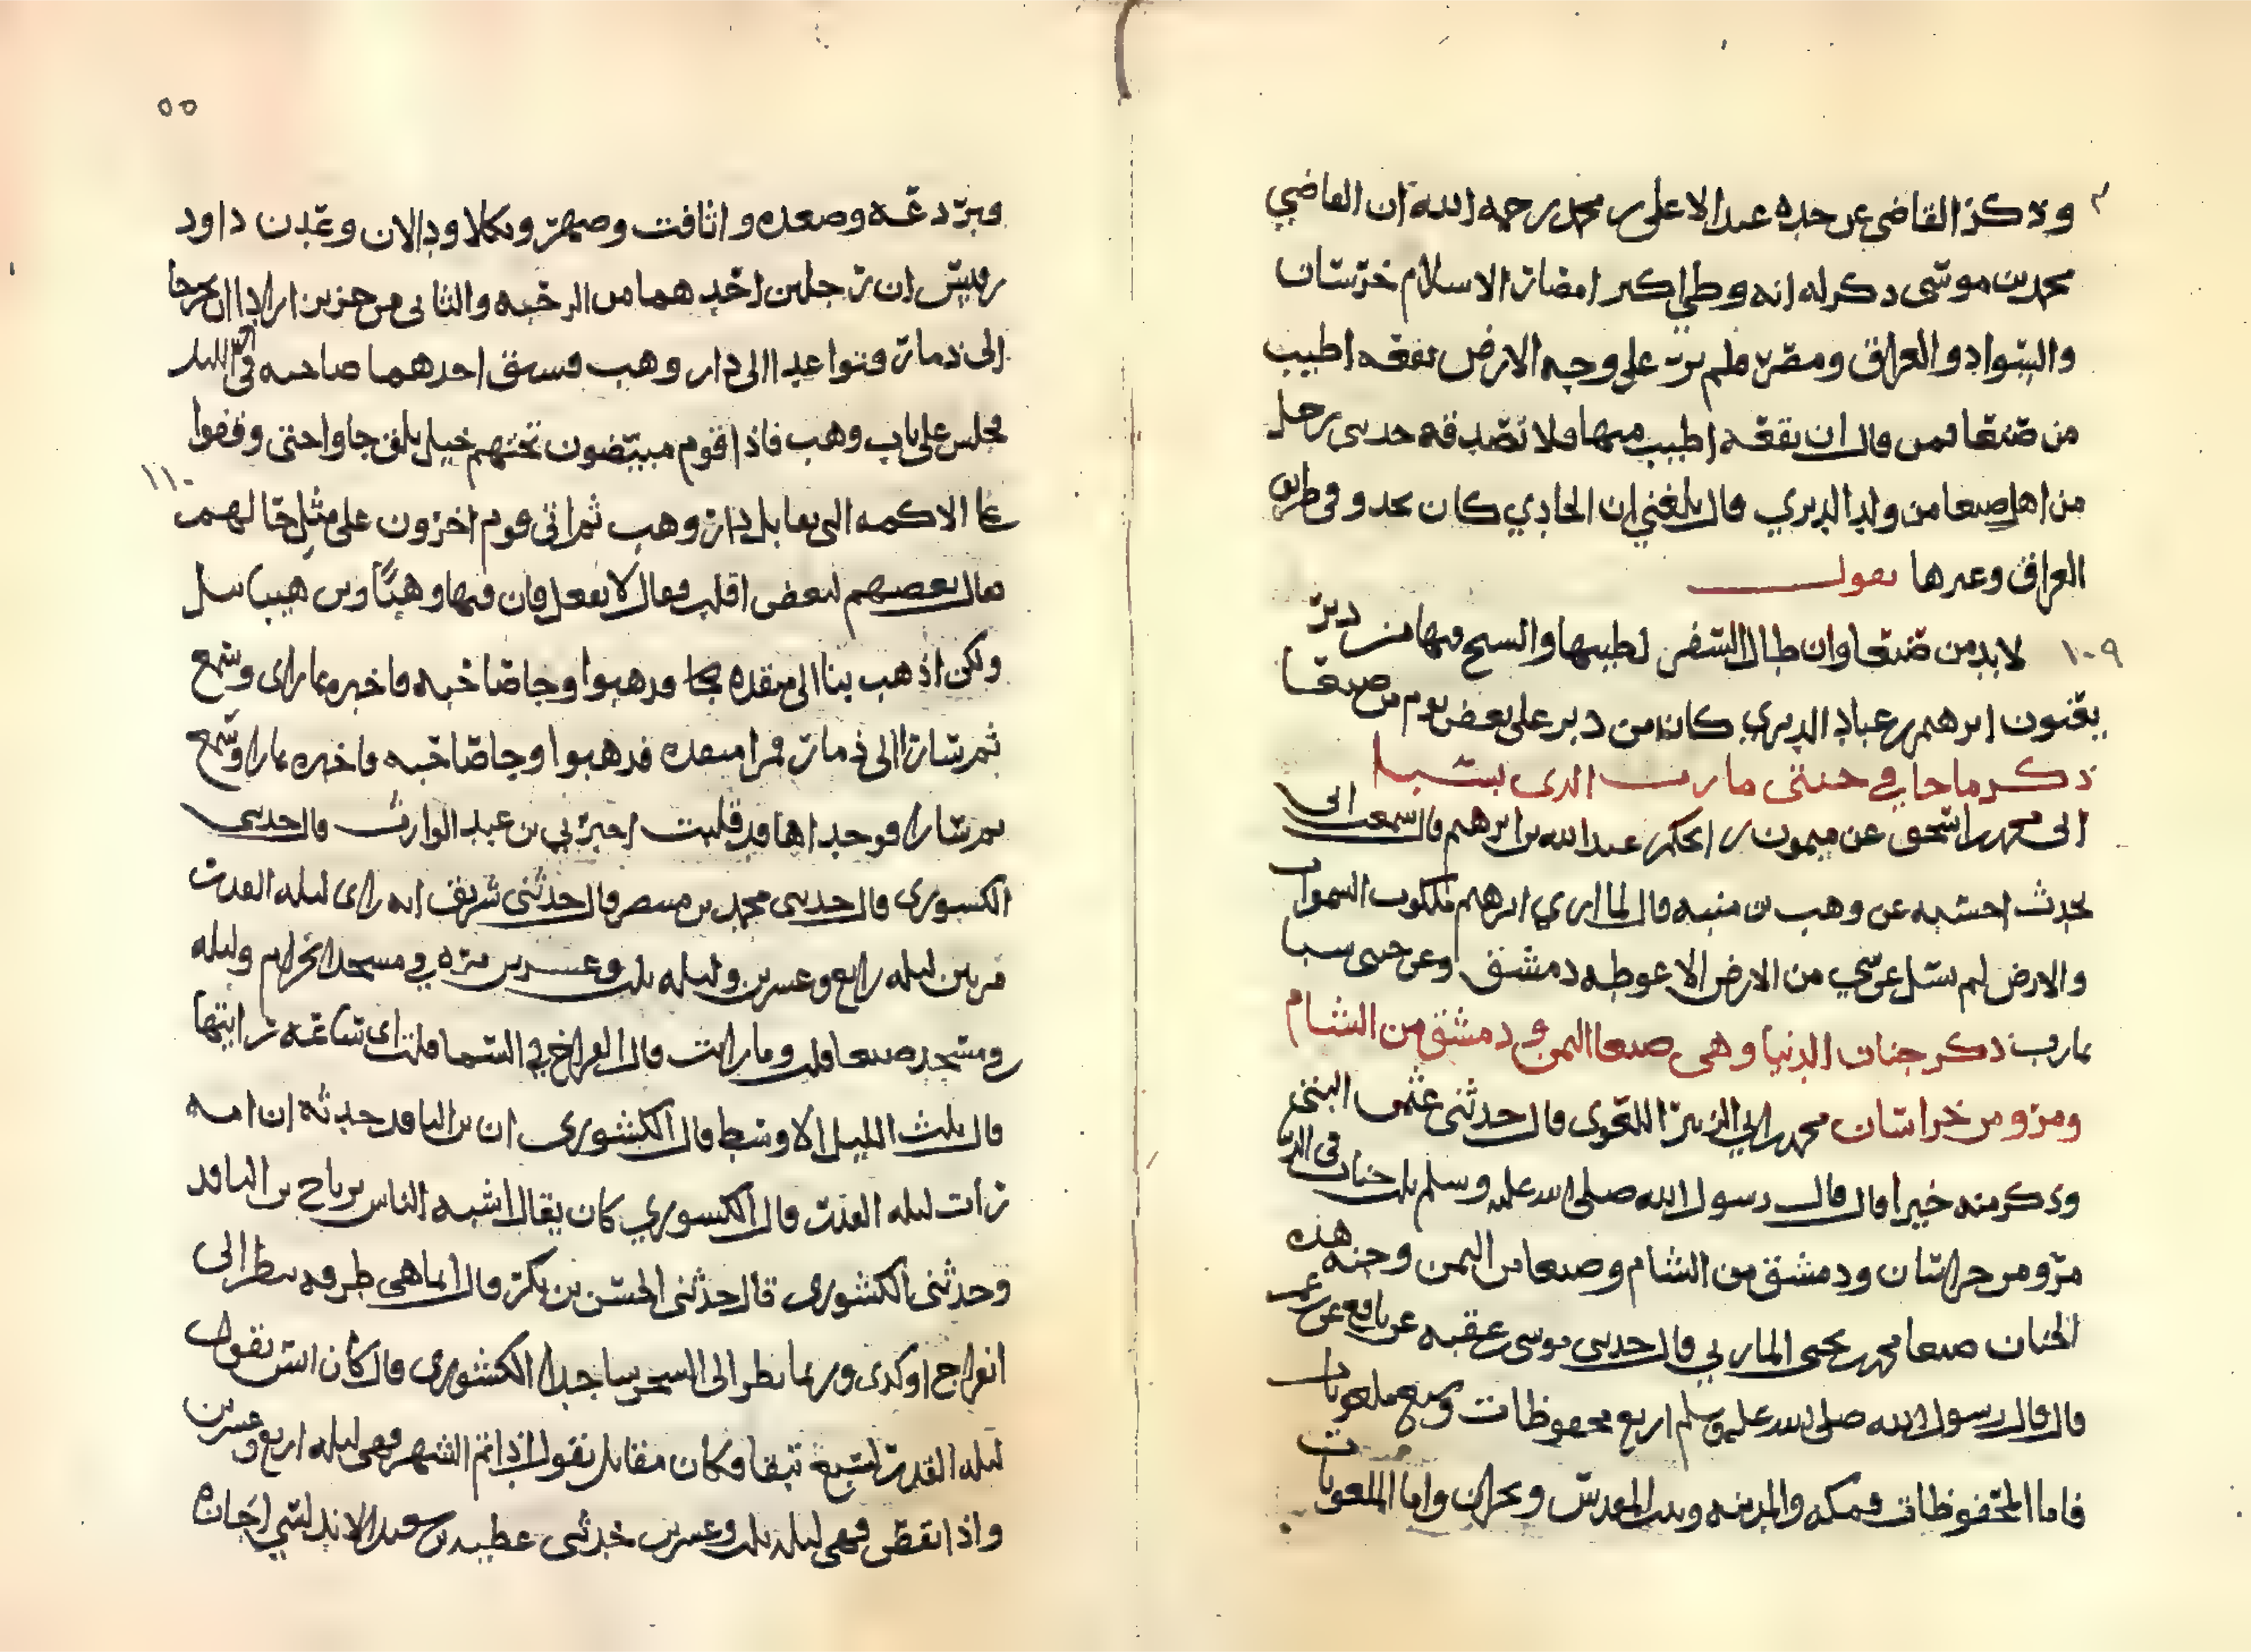 وذكر القاضي عن جده عبد الاعلى بن محمد رحمه الله ان القاضي
محمد بن موسى ذكر له انه وطي اكبر امصار الاسلام خرسان
والسواد والعراق ومصر فلم ير على وجه الارض بقعه اطيب
من صنعا فمن قال ان بقعه اطيب منها فلا تصدقه حدثني رجل
من اهل صنعا من ولد الدبري قال بلغني ان الحادي كان يحدو في طريق
العراق وغيرها يقول
١٠٩ لابد من صنعا وان طال السفر لطيبها والشيخ فيها من دبر
يعنون ابرهيم بن عباد الدبري كان من دبر على بعض يوم من صنعا
ذكر ما جا في جنتي مارب الذي بسبا
ابي محمد بن اسحق عن ميمون بن الحكم عبد الله بن ابرهيم قال سمعت ابي
يحدث احسبه عن وهب بن منبه قال لما اري ابرهيم ملكوت السموات
والارض لم يسل عن شي من الارض الا غوطه دمشق وعن جنتي سبا
بمارب ذكر جنات الدنيا وهي صنعا اليمن ودمشق من الشام
ومرو من خراسان محمد بن ابي الزبير اللغوي قال حدثني عثمن
وذكر منه خيرا قال قال رسول الله صلى الله عليه وسلم ثلث جنات في الدنيا
مرو من خراسان ودمشق من الشام وصنعا من اليمن وجنه هذه
الجنان صنعا محمد بن يحيى الماربي قال حدثني موسى بن عقبه عن نافع عن بن عمر
قال قال رسول الله صلى الله عليه وسلم اربع محفوظات وسبع ملعونات
فاما المحفوظات فمكه والمدينه وبيت المقدس ونجران واما الملعونات
٥٥
فبرذعه وصعده واثافت وصهر ويكلا ودلان وعدن داود
بن قيس ان رجلين احدهما من الرحبه والثاني من حزيز ارادا ان يخرجا
الى ذمار فتواعدا الى دار وهب فسبق احدهما صاحبه في الليل
١١٠ فجلس على باب وهب فاذا قوم مبيضون تحتهم خيل بلق جاوا حتى وقفوا
على الاكمه التي تقابل دار وهب ثم اتى قوم اخرون على مثل حالهم
فقال بعضهم لبعض اقلب فقال لا تفعل فان فيها وهبا وبن هيبا نسل
ولكن اذهب بنا الى منقده فذهبوا وجا صاحبه فاخبره بما راى وسمع
ثم سارا الى ذمار فمرا منقده فذهبوا وجا صاحبه فاخبره بما راى وسمع
ثم سارا فوجداها قد قلبت اخبرني بن عبد الوارث قال حدثني
الكشوري قال حدثني محمد بن قال حدثني شريف انه راى ليله القدر
مرتين ليله رابع وعشرين وليله ثلث وعشرين مره في مسجد الحرام وليله
في مسجد صنعا قلت وما رايت قال انفراج في السما قلت اي ساعه رايتها
قال ثلث الليل الاوسط قال الكشوري ان بن الناقد حدثه ان امه
رات ليله القدر قال الكشوري كان يقال اشبه الناس برباح بن الناقد
وحدثني الكشوري قال حدثني الحسن بن بكر قال انما هي طرفه ينظر الى
انفراج او كدى وربما نظر الى الشجر ساجدا الكشوري قال كان انس يقول
ليله القدر لسبع تبقا وكان مقاتل يقول اذا تم الشهر فهي ليله اربع وعشرين
واذا نقص فهي ليله ثلث وعشرين حدثني عطيه بن سعيد الاندلسي اجازه